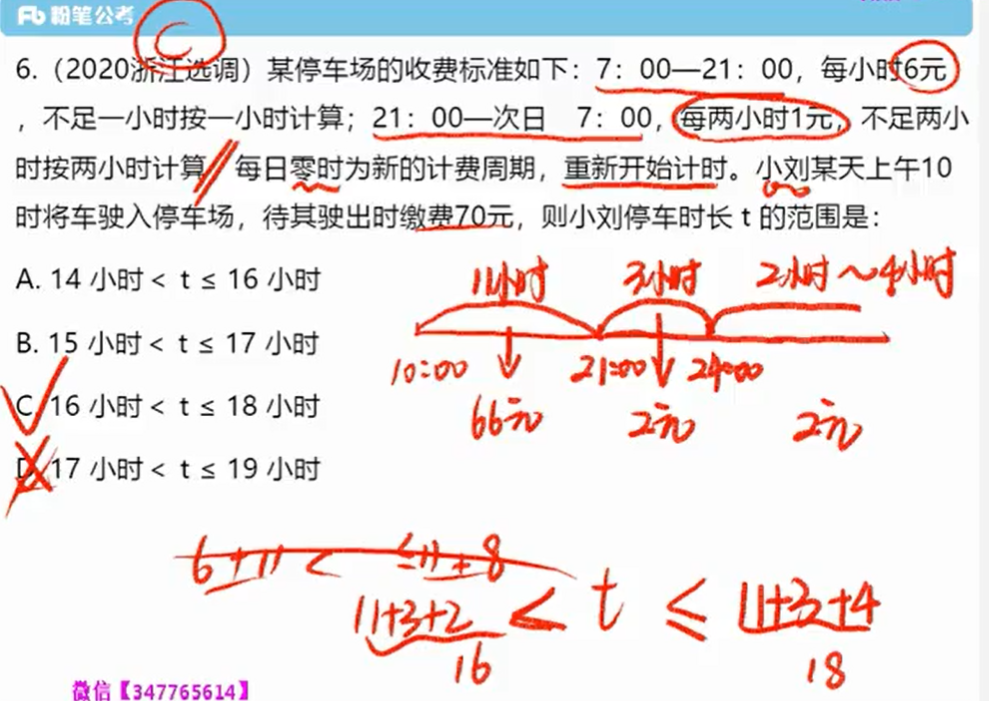 粉笔公考
C
6.（2020浙江选调）某停车场的收费标准如下：7：00—21：00，每小时6元
，不足一小时按一小时计算；21：00—次日 7：00，每两小时1元，不足两小
时按两小时计算 每日零时为新的计费周期，重新开始计时。小刘某天上午10
时将车驶入停车场，待其驶出时缴费70元，则小刘停车时长 t 的范围是：
A. 14 小时 < t ≤ 16 小时
B. 15 小时 < t ≤ 17 小时
C. 16 小时 < t ≤ 18 小时
D. 17 小时 < t ≤ 19 小时
11小时 3小时 2小时～4小时
10:00 21:00 24:00
66元 2元 2元
6+11 < ≤11+8
11+3+2 < t ≤ 11+3+4
16 18
微信【347765614】